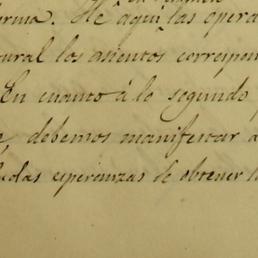 forma. He aquí las opera
tural los asientos correspon
En cuanto á lo segundo
debemos manifestar
esperanzas de obtener